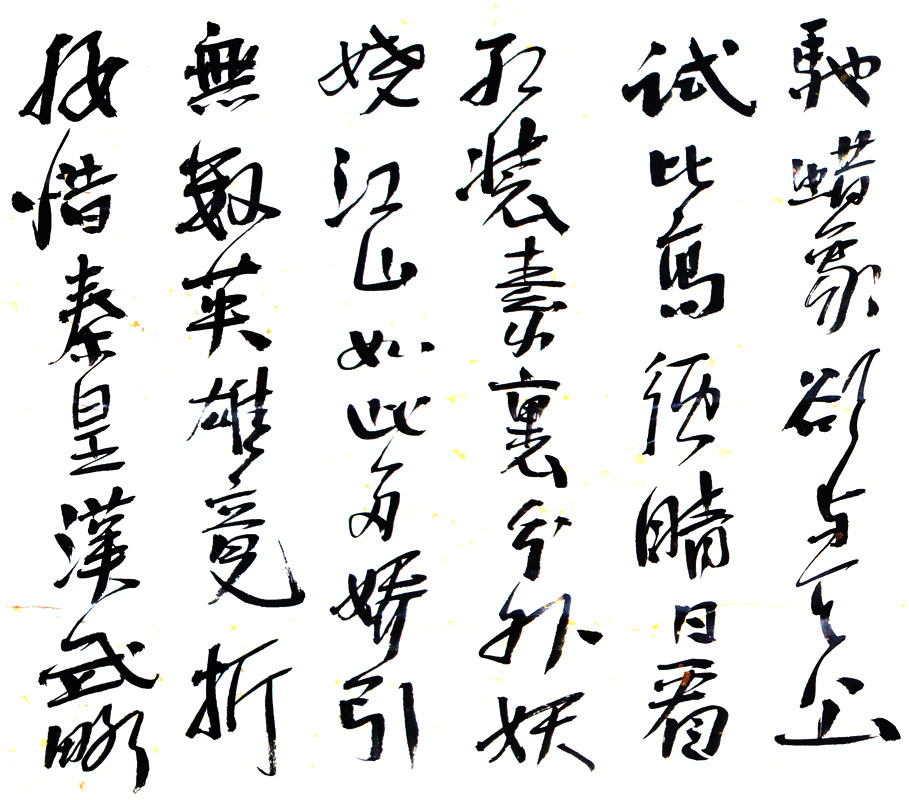 馳蜡象欲与天公
試比高須晴日看
红装素裹分外妖
娆江山如此多娇引
無數英雄竟折
腰惜秦皇漢武略